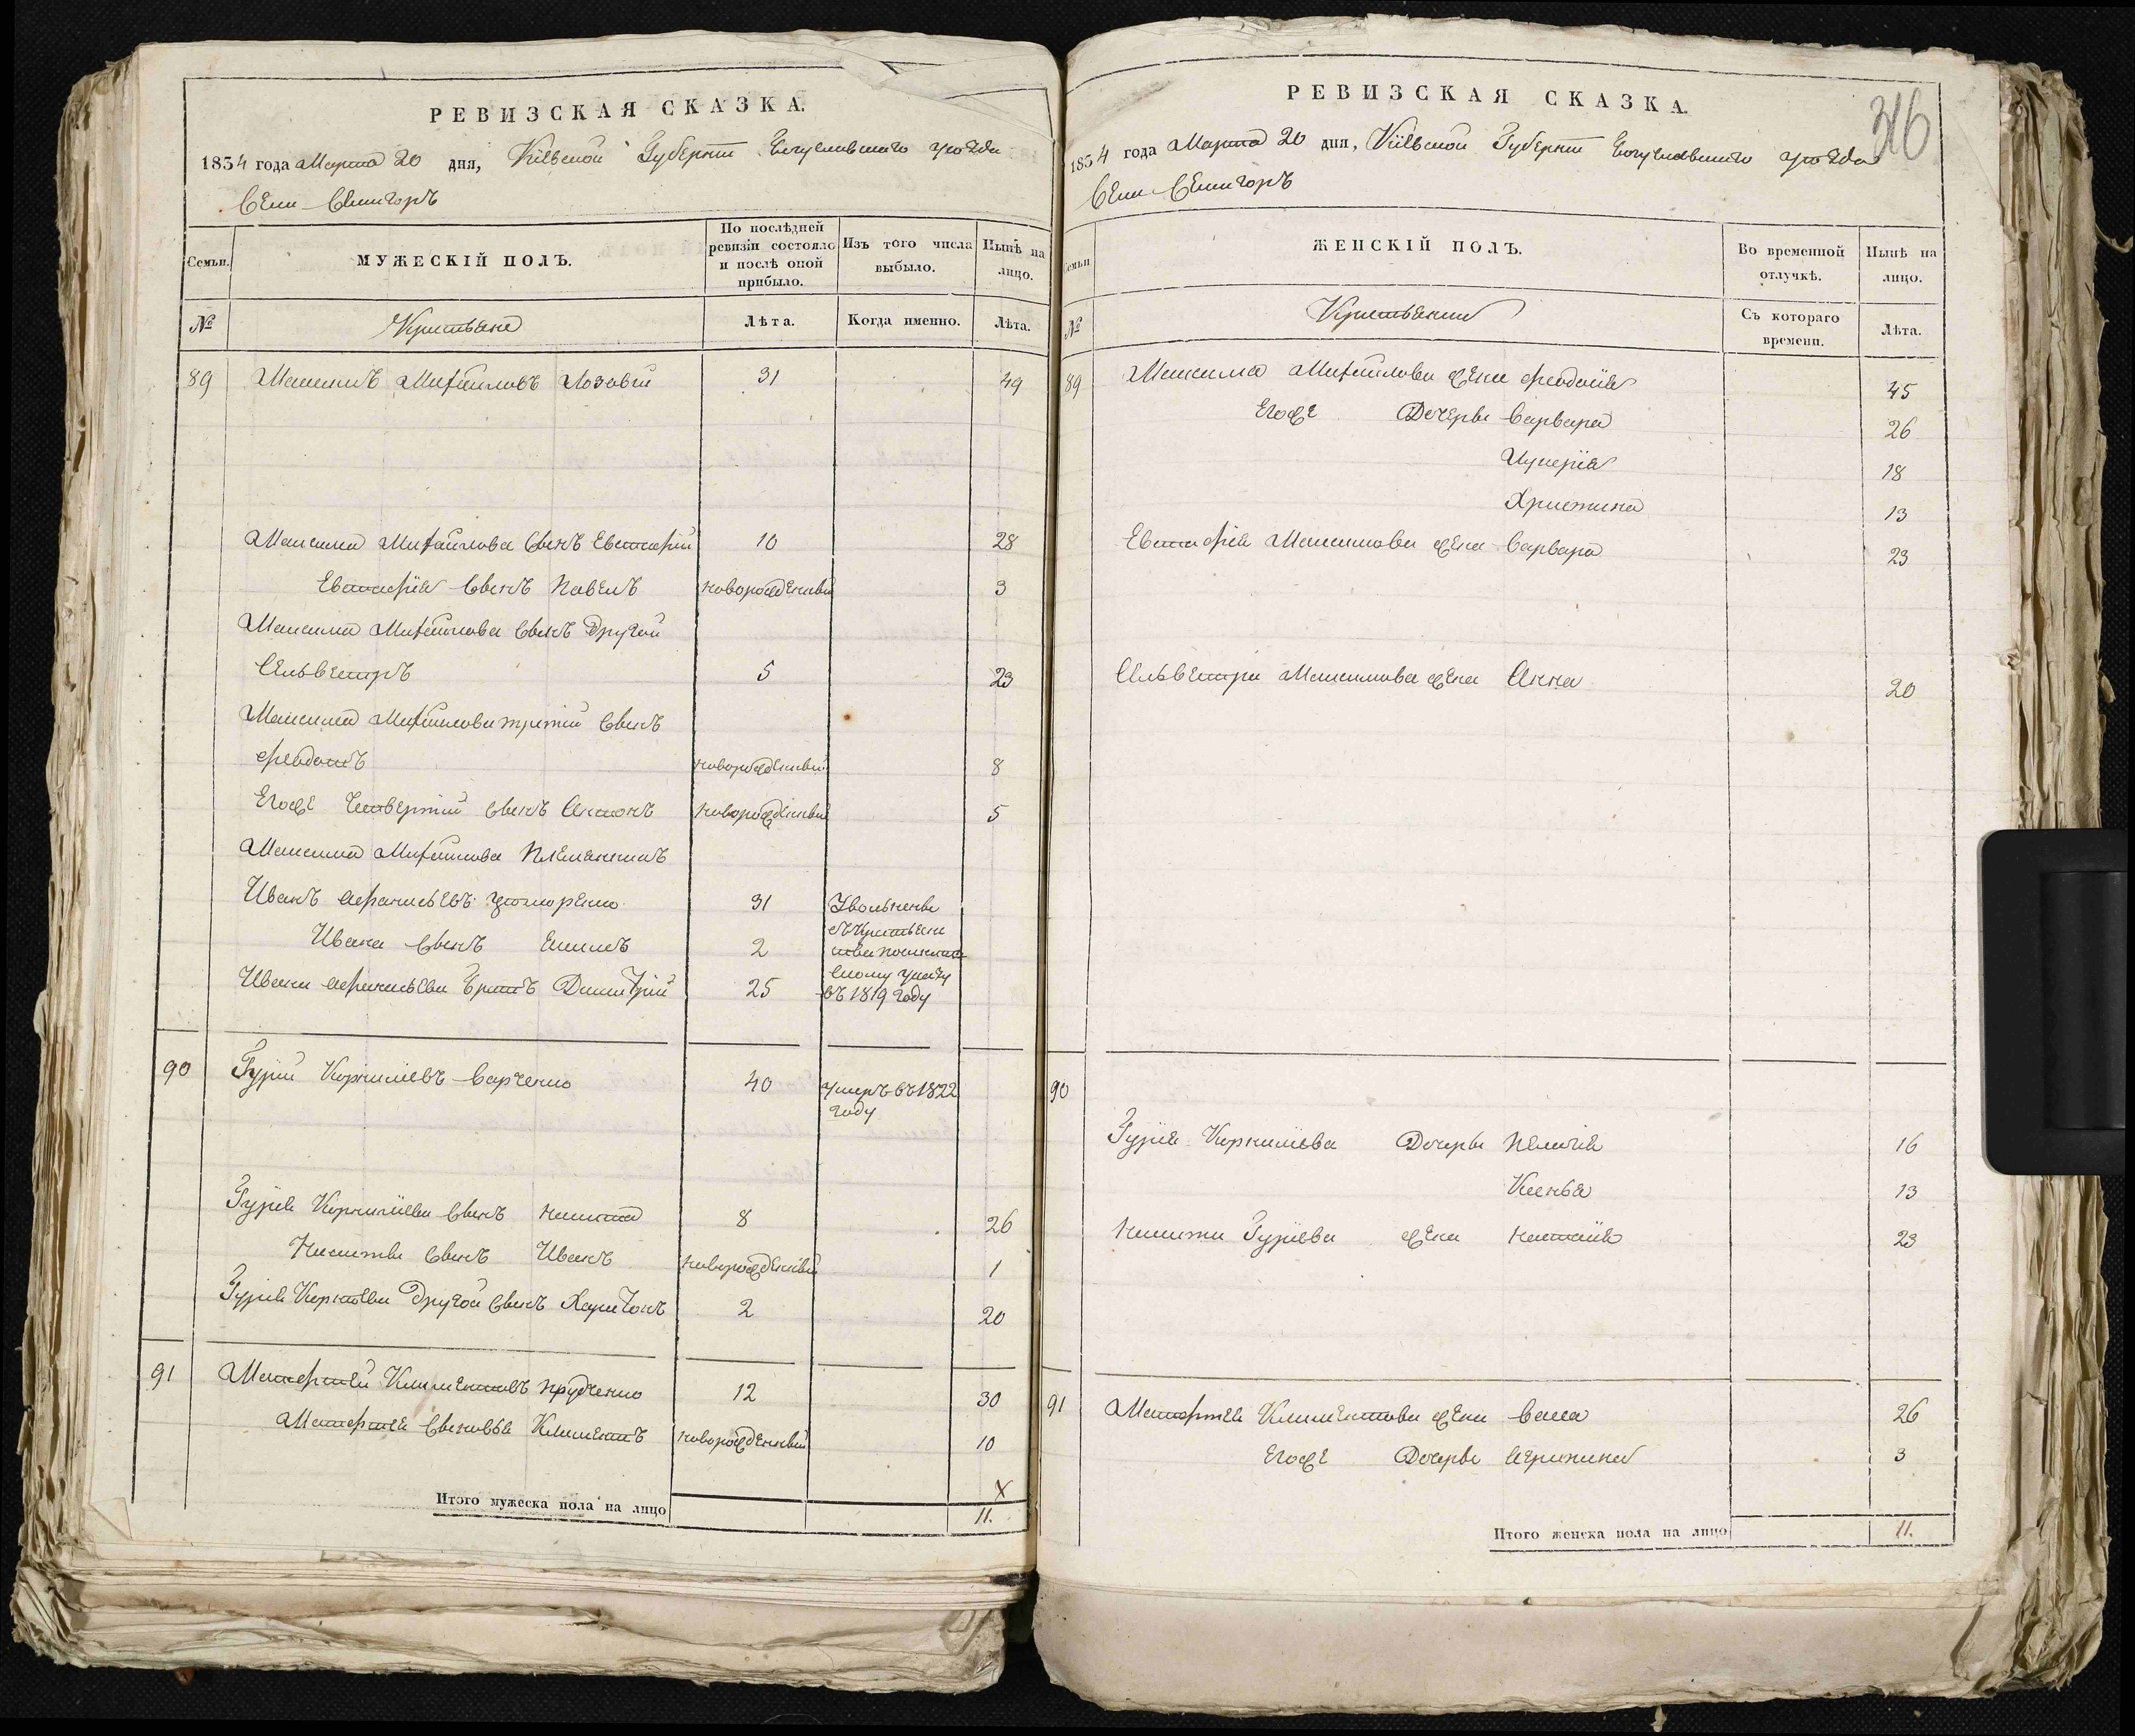 РЕВИЗСКАЯ СКАЗКА.
1834 года Марта 20 дня, Кіевской Губерніи Богуславского уѣзда
Села Семигоръ
Семьи.
МУЖЕСКІЙ ПОЛЪ.
По послѣдней ревизіи состояло и послѣ оной прибыло.
Изъ того числа выбыло.
Нынѣ на лицо.
№
Крестьяне
Лѣта.
Когда именно.
Лѣта.
89 Максимъ Михайловъ Лозовый 31 49
Максима Михайлова сынъ Евстафій 10 28
Евстафія сынъ Павелъ новорожденный 3
Максима Михайлова сынъ другой
Сельвестръ 5 23
Максима Михайлова третій сынъ
Феодотъ новорожденный 8
Егоже Четвертый сынъ Антонъ новорожденный 5
Максима Михайлова племянникъ
Иванъ Афанасьевъ 31
Ивана сынъ 2
Ивана Афанасьева братъ Димитрій 25
въ 1819 году
90 Гурій Корниліевъ Харченко 40 умеръ въ 1822
году
Гурія Корниліева сынъ Никита 8 26
Никиты сынъ Иванъ новорожденный 1
Гурія Корнѣева другой сынъ Харитонъ 2 20
91 Матфтей Климентовъ Прудченко 12 30
Матфтея сыновья Климентъ новорожденный 10
X
Итого мужеска пола на лицо 11.
РЕВИЗСКАЯ СКАЗКА.
316
1834 года Марта 20 дня, Кіевской Губерніи Богуславского уѣзда
Села Семигоръ
Семьи
ЖЕНСКІЙ ПОЛЪ.
Во временной отлучкѣ.
Нынѣ на лицо.
№
Крестьянки
Съ котораго времени.
Лѣта.
89 Максима Михайлова жена Феодосія 45
Егоже Дочеры Варвара 26
Гликерія 18
Христина 13
Евстафія Максимова жена Варвара 23
Сельвестра Максимова жена Анна 20
90
Гурія Корниліева Дочеры Пелагія 16
Ксенья 13
Никиты Гуріева жена Настасія 23
91 Матфтея Климентова жена Васса 26
Егоже Дочеры 3
Итого женска пола на лицо 11.